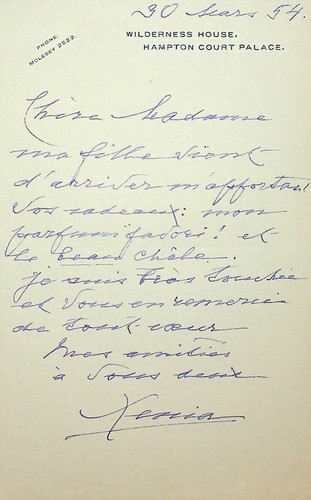 30 Mars 54.
PHONE:
MOLESEY 2522.
WILDERNESS HOUSE,
HAMPTON COURT PALACE.
Chère Madame
ma fille vient
d'arriver m'apportant
vos cadeaux: mon
parfum favori! et
le beau châle.
je suis très touchée
et vous en remercie
de tout cœur
Mes amitiés
à vous deux
Xenia